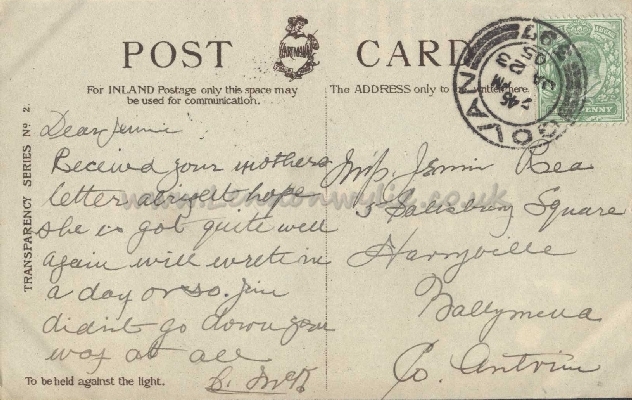 POST CARD
For INLAND Postage only this space may
be used for communication.
The ADDRESS only to be written here.
TRANSPARENCY SERIES Nº 2.
GOVAN
7 45 PM
JA 23
05
PENNY
Dear Jennie
Received your mothers
letter alright hope
she is got quite well
again will write in
a day or so. Jim
didn't go down your
way at all
L. McK
Miss Jennie Rea
5 Salisbury Square
Harryville
Ballymena
Co. Antrim
To be held against the light.
www.lennonwylie.co.uk